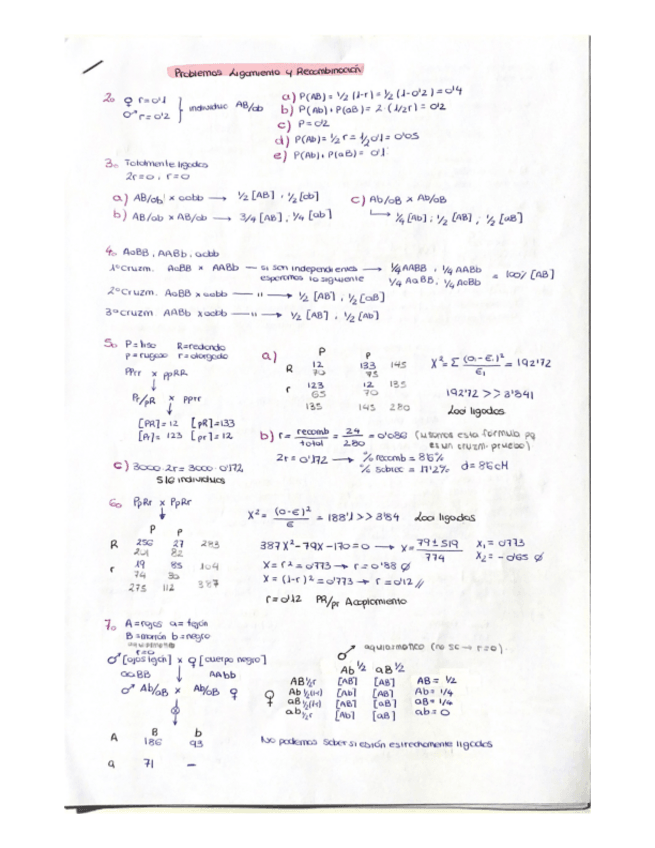 Problemas Ligamiento y Recombinación
2. ♀ r=0'1 } individuo AB/ab
♂ r=0'2
a) P(AB) = 1/2 (1-r) = 1/2 (1-0'2) = 0'4
b) P(Ab) + P(aB) = 2 · (1/2 r) = 0'2
c) P=0'2
d) P(Ab) = 1/2 r = 1/2 0'1 = 0'05
e) P(Ab) + P(aB) = 0'1
3. Totalmente ligados
2r=0, r=0
a) AB/ab × aabb → 1/2 [AB], 1/2 [ab]
b) AB/ab × AB/ab → 3/4 [AB], 1/4 [ab]
c) Ab/aB × Ab/aB
→ 1/4 [Ab]; 1/2 [AB]; 1/2 [aB]
4. AaBB, AABb, aabb
1º Cruzm. AaBB × AABb — si son independientes esperamos lo siguiente → 1/4 AABB, 1/4 AABb
1/4 AaBB, 1/4 AaBb = 100% [AB]
2º Cruzm. AaBB × aabb — " → 1/2 [AB], 1/2 [aB]
3º Cruzm. AABb × aabb — " → 1/2 [AB], 1/2 [Ab]
5. P=liso R=redondo
p=rugoso r=alargado
PPrr × ppRR
↓
Pr/pR × pprr
↓
[PR]=12 [pR]=133
[Pr]=123 [pr]=12
a) P p
R 12 133 145
70 75
r 123 12 135
65 70
135 145 280
X² = Σ (O-E)²/E = 192'72
192'72 >> 3'841
Loci ligados
b) r = recomb/total = 24/280 = 0'086 (usamos esta fórmula pq es un cruzm. prueba)
2r = 0'172 → % recomb = 8'6%
% sobrec = 17'2% d=8'6cM
c) 3000 · 2r = 3000 · 0'172
516 individuos
6. PpRr × PpRr
↓
P p
R 256 27 283
82
r 19 85 104
74 30
275 112 387
X² = (O-E)²/E = 188'1 >> 3'84 Loci ligados
387X² - 79X - 170 = 0 → X = 79 ± 519/774 X₁ = 0'773
X₂ = -0'65 Ø
X = r² = 0'773 → r = 0'88 Ø
X = (1-r)² = 0'773 → r = 0'12 //
r = 0'12 PR/pr Acoplamiento
7. A=rojos a=
B=marrón b=negro
r=0
♂ × ♀ [cuerpo negro]
aaBB AAbb
↓
♂ Ab/aB × Ab/aB ♀
↓
B b
A 186 93
a 71 —
♂ aquiasmático (no sc → r=0).
Ab 1/2 aB 1/2
♀ AB 1/2 r [AB] [AB] AB = 1/2
Ab 1/2(1-r) [Ab] [AB] Ab = 1/4
aB 1/2(1-r) [AB] [aB] aB = 1/4
ab 1/2 r [Ab] [aB] ab = 0
No podemos saber si están estrechamente ligados